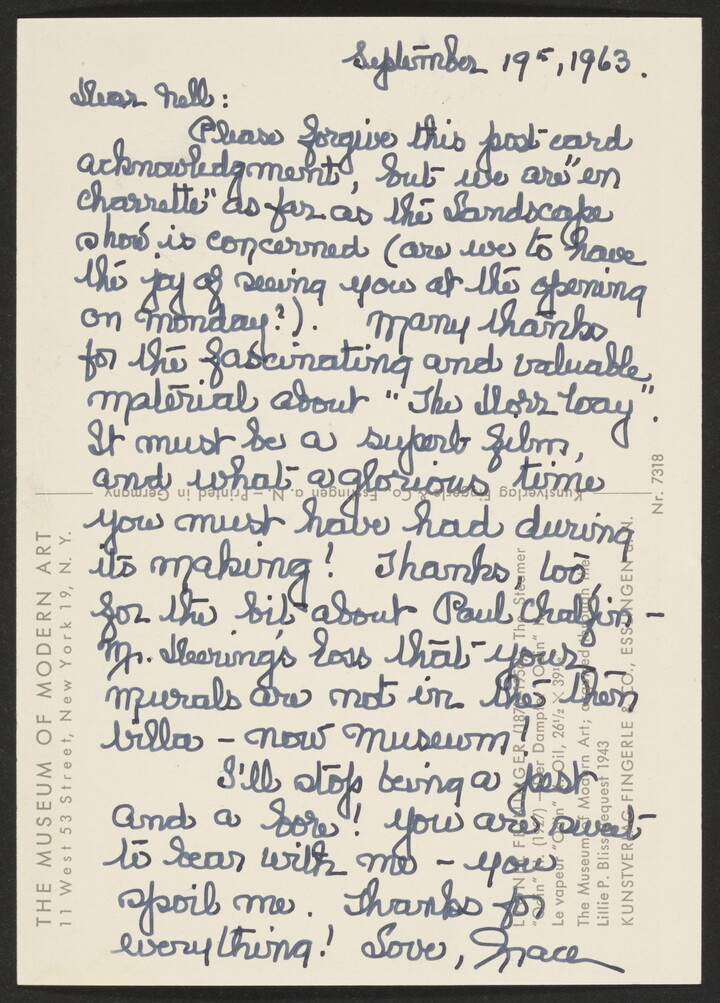 September 19th, 1963.
Dear Nell:
Please forgive this post-card
acknowledgment, but we are "en
charrette" as far as the Landscape
show is concerned (are we to have
the joy of seeing you at the opening
on Monday?). Many thanks
for the fascinating and valuable
material about "The Horz Way".
It must be a superb film,
and what a glorious time
you must have had during
its making! Thanks, too,
for the bit about Paul Chalfin –
Mr. Deering's loss that your
murals are not in the then
villa – now museum!
I'll stop being a pest
and a bore! You are sweet
to bear with me – you
spoil me. Thanks for
everything! Love, Grace
THE MUSEUM OF MODERN ART
11 West 53 Street, New York 19, N. Y.
Kunstverlag Fingerle & Co., Esslingen a. N. – Printed in Germany
Nr. 7318
FEININGER (1871-1956) The Steamer
"Odin" II. (1927) Der Dampfer "Odin" II.
Le vapeur "Odin" Oil, 26½ × 39½
The Museum of Modern Art; acquired through the
Lillie P. Bliss Bequest 1943
KUNSTVERLAG FINGERLE & CO., ESSLINGEN a. N.